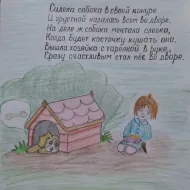 Сидела собака в своей конуре
И грустной казалась всем во дворе.
На деле ж собака мечтала слегка,
Когда будет косточку кушать она.
Вышла хозяйка с тарелкой в руке,
Сразу счастливым стал пёс во дворе.